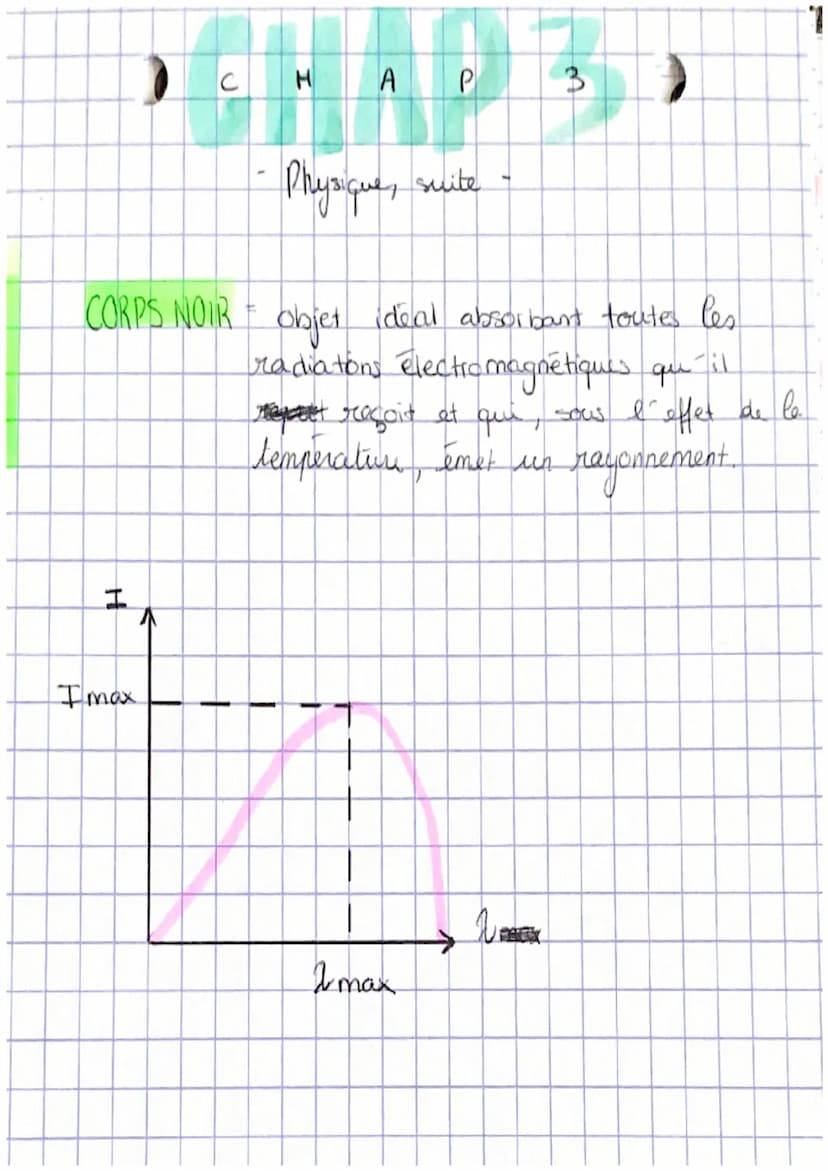 CHAP 3
C H A P 3
- Physique, suite -
CORPS NOIR = objet idéal absorbant toutes les
radiatons électromagnétiques qu'il
reçoit et qui, sous l'effet de la
température, émet un rayonnement.
I
I max
λ
λ max